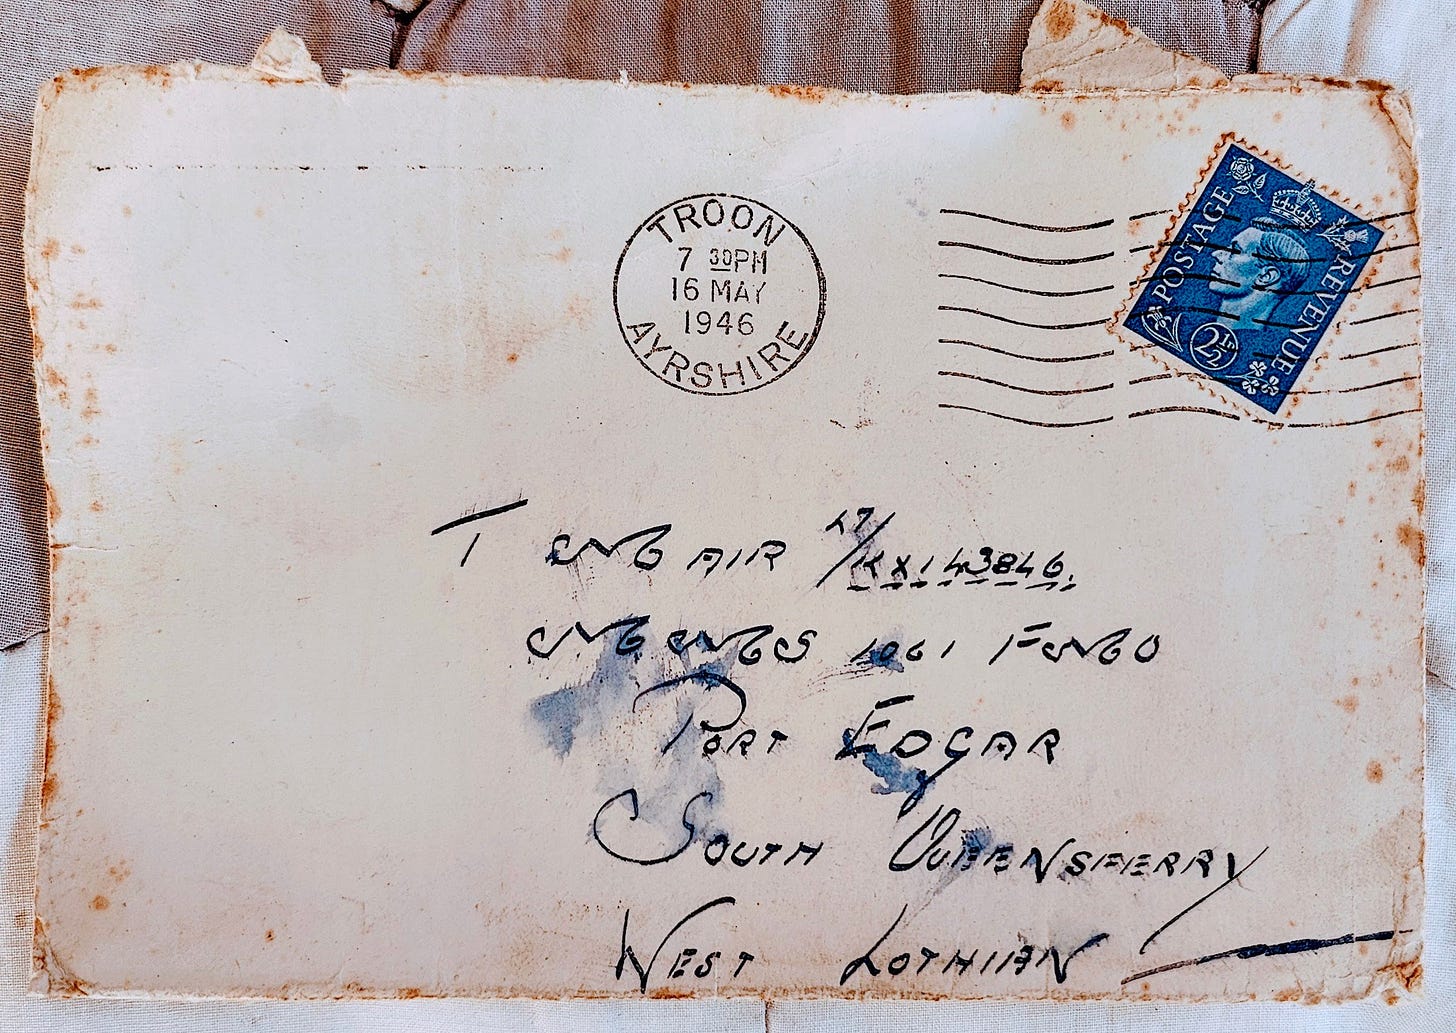 TROON
7 30PM
16 MAY
1946
AYRSHIRE
POSTAGE
REVENUE
2½D
T MAIR LT/KX143846.
MMS 1061 FMO
PORT EDGAR
SOUTH QUEENSFERRY
WEST LOTHIAN